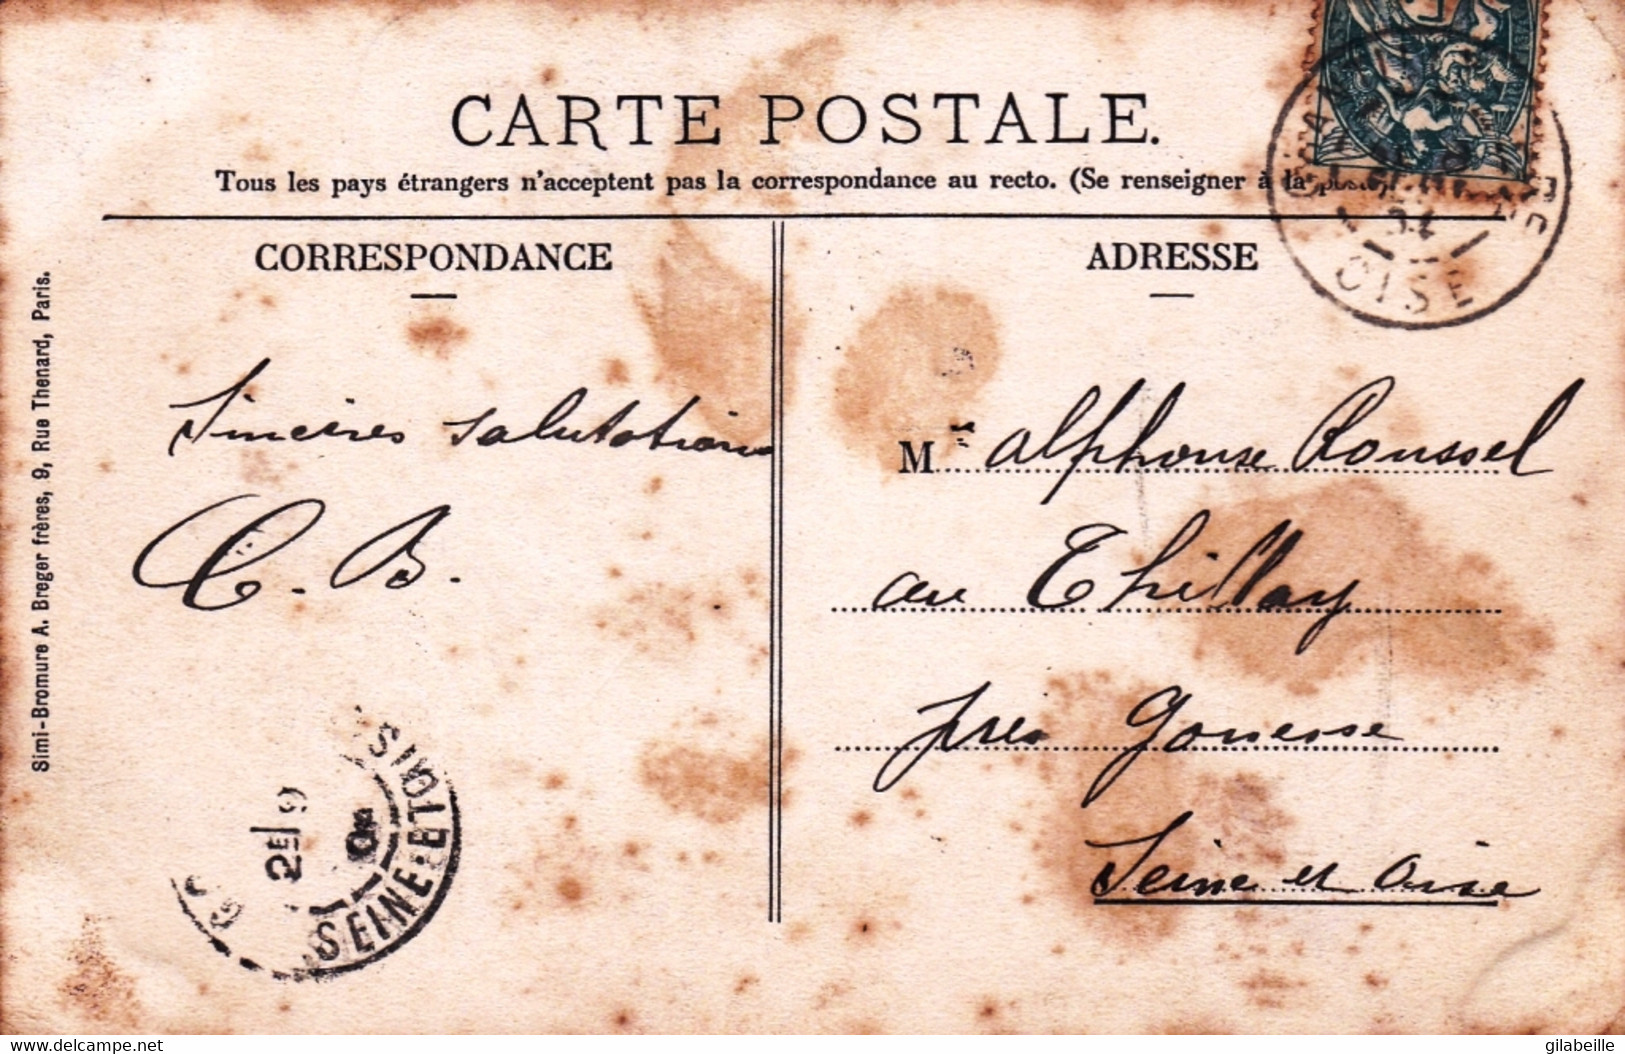 CARTE POSTALE.
Tous les pays étrangers n'acceptent pas la correspondance au recto. (Se renseigner à la poste)
CORRESPONDANCE
Sincères salutations
C. B.
ADRESSE
M Alphonse Roussel
au Thillay
près Gonesse
Seine et Oise
Simi-Bromure A. Breger frères, 9, Rue Thenard, Paris.
OISE
2E 9
SEINE-ET-OISE
delcampe.net
gilabeille